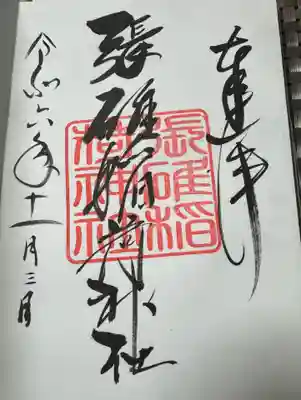 張碓稲荷神社
張碓稲
荷神社
令和六年十一月三日